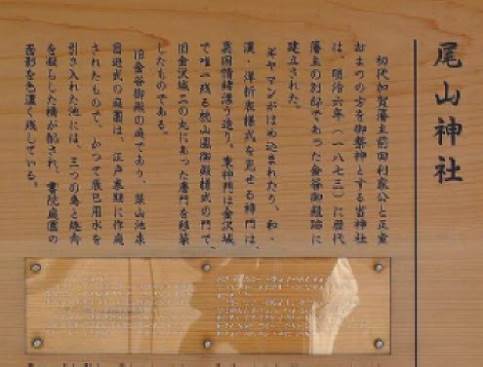 尾山神社
初代加賀藩主前田利家公と正室
おまつの方を御祭神とする当神社
は、明治六年(一八七三)に歴代
藩主の別邸であった金谷御殿跡に
建立された。
ギヤマンがはめ込まれたり、和・
漢・洋折衷様式を見せる神門は、
異国情緒漂う造り。東神門は金沢城
で唯一残る桃山風御殿様式の門で、
旧金沢城二の丸にあった唐門を移築
したものである。
旧金谷御殿の庭であり、築山池泉
回遊式の庭園は、江戸末期に作庭
されたもので、かつて辰巳用水を
引き入れた池には、三つの島と趣向
を凝らした橋が配され、書院庭園の
面影を色濃く残している。